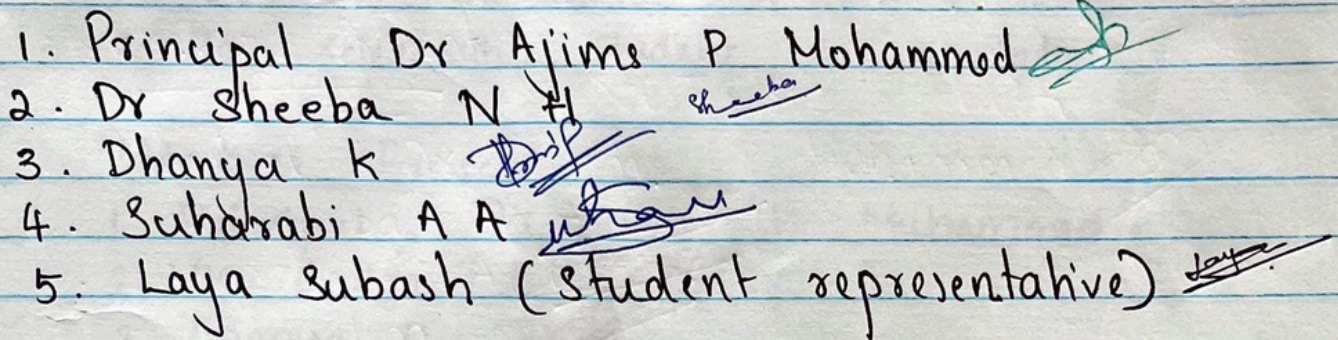 1. Principal Dr Ajims P Mohammed
2. Dr Sheeba N H Sheeba
3. Dhanya K
4. Suharabi A A
5. Laya Subash (student representative) Laya